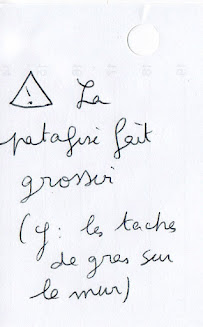 ⚠ La
patafisi fait
grossir
(cf : les taches
de gras sur
le mur)